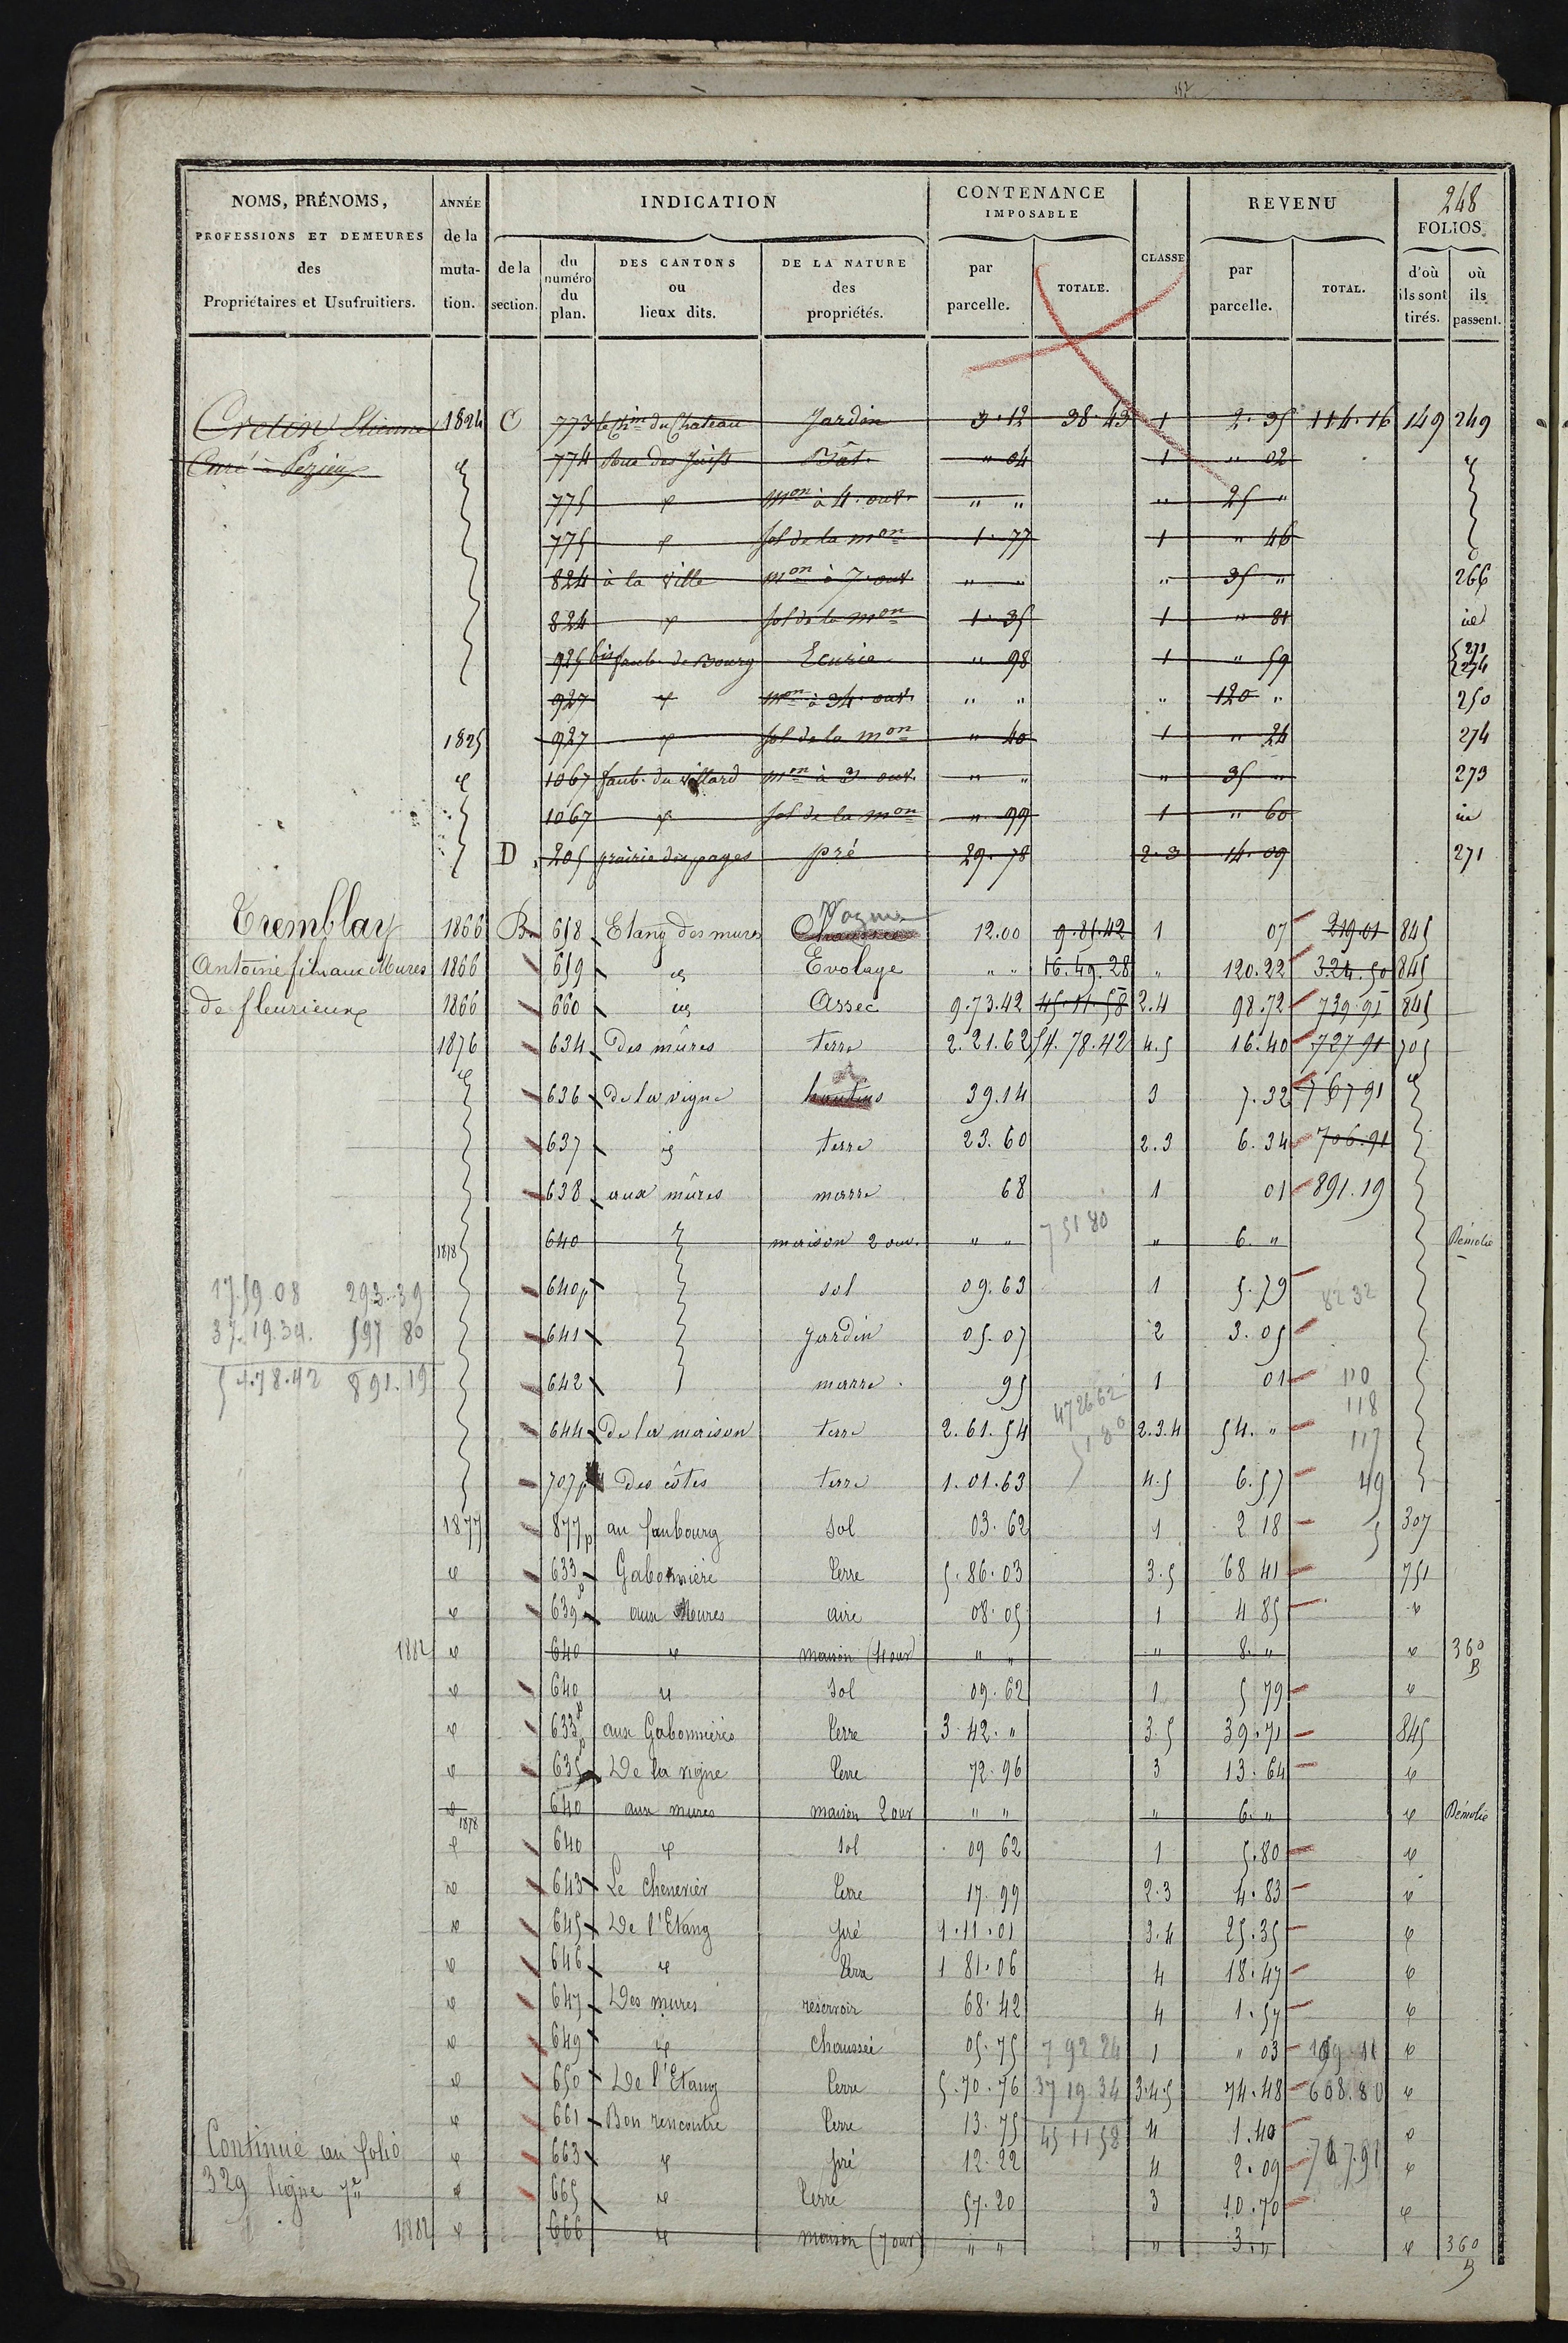 157
248
NOMS, PRÉNOMS, PROFESSIONS ET DEMEURES des Propriétaires et Usufruitiers.
ANNÉE de la mutation.
INDICATION
de la section.
du numéro du plan.
DES CANTONS ou lieux dits.
DE LA NATURE des propriétés.
CONTENANCE IMPOSABLE
par parcelle.
TOTALE.
CLASSE
REVENU
par parcelle.
TOTAL.
FOLIOS
d'où ils sont tirés.
où ils passent.
Cretin Etienne 1824 C 773 le Chin du Chateau Jardin 3.12 38.43 1 2.35 114.16 149 249
Curé à 774 Rue des Juifs Bât. " 04 1 " 02
775 mon à 4 ouv. " " " 25 "
775 sol de la mon 1.77 1 " 46
824 à la Ville mon à 7 ouv. " " " 35 " 266
824 sol de la mon 1.35 1 " 81 id
925 bis faub. de Bourg Ecurie " 98 1 " 59 271 274
927 mon à 34 ouv. " " " 120 " 250
1825 927 sol de la mon " 40 1 " 24 274
1067 faub. du Villard mon à 3 ouv. " " " 35 " 273
1067 sol de la mon " 99 1 " 60 id
D 205 prairie des pages pré 29.78 2.3 14.09 271
Tremblay 1866 B 658 Etang des mures Chaussée 12.00 9.85.42 1 07 219.01 845
Antoine fils aux Mures 1866 659 id Evolage " " 16.49.28 " 120.22 324.50 845
de fleurieux 1866 660 id Assec 9.73.42 45.11.58 2.4 98.72 739.91 845
1876 634 Des mûres terre 2.21.62 54.78.42 4.5 16.40 727 91 705
636 De la vigne hautins 39.14 3 7.32 767 91
637 id terre 23.60 2.3 6.34 706.91
638 aux mûres marre 68 1 01 891.19
751 80
1878 640 maison 2 ouv. " " " 6. " Démolie
17.59 08 293.39 640p sol 09.63 1 5.79 82 32
37.19.34. 597 80 641 Jardin 05.07 2 3.05
54.78.42 891.19 642 marre 95 1 01 110
472662 118
644 De la maison terre 2.61.54 5180 2.3.4 54. " 117
707p Des côtes terre 1.01.63 4.5 6.57 49
1877 877p au faubourg Sol 03.62 1 2 18 5 307
633p Gabonnière Terre 5.86.03 3.5 68 41 751
639p aux Mures aire 08.05 1 4 85
1882 640 maison (4 ouv) " " " 8. " 360 B
640p Sol 09.62 1 5 79
633p aux Gabonnières Terre 3.42. " 3.5 39.71 845
635 De la vigne Terre 72.96 3 13.64
1878 640 aux mures maison 2 ouv " " " 6. " Démolie
640 Sol 09 62 1 5.80
643 Le Chenevier Terre 17.99 2.3 4.83
645 De l'Etang pré 1.11.01 3.4 25.35
646 Terre 1 81.06 4 18.47
647 Des mures réservoir 68.42 4 1.57
649 chaussée 05.75 7 92 24 1 " 03 159 11
650 De l'Etang Terre 5.70.76 37 19 34 3.4.5 74.48 608.80
661 Bon rencontre Terre 13.75 45 11 58 4 1.40
Continué au folio 663 pré 12.22 4 2.09 767.91
329 ligne 7e 665 Terre 57.20 3 10.70
1882 666 maison (7 ouv) " " " 3. " 360 B